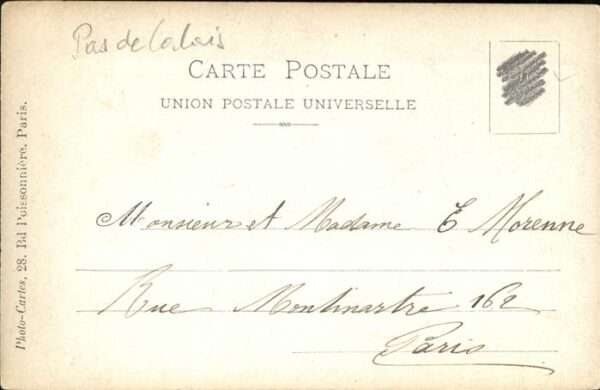 Pas de Calais
CARTE POSTALE
UNION POSTALE UNIVERSELLE
Photo-Cartes, 28. Bd Poissonnière. Paris.
Monsieur et Madame E Morenne
Rue Montmartre 162
Paris